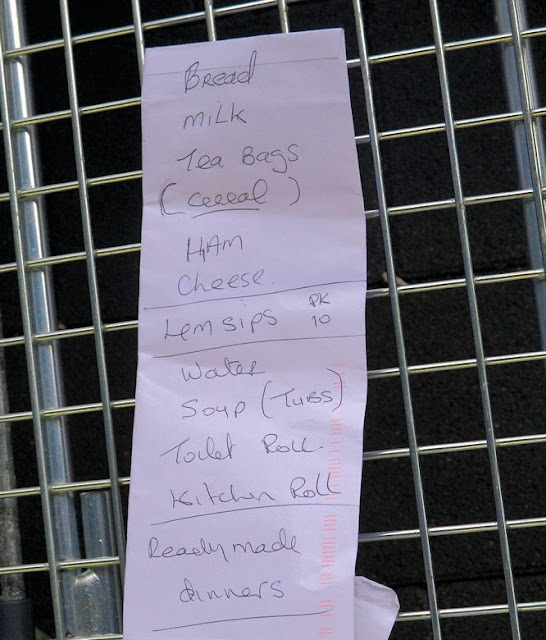 Bread
MiLK
Tea Bags
(Cereal)
HAM
Cheese.
Lemsips PK 10
Water
Soup (TUBS)
Toilet Roll.
Kitchen Roll
Readymade
dinners